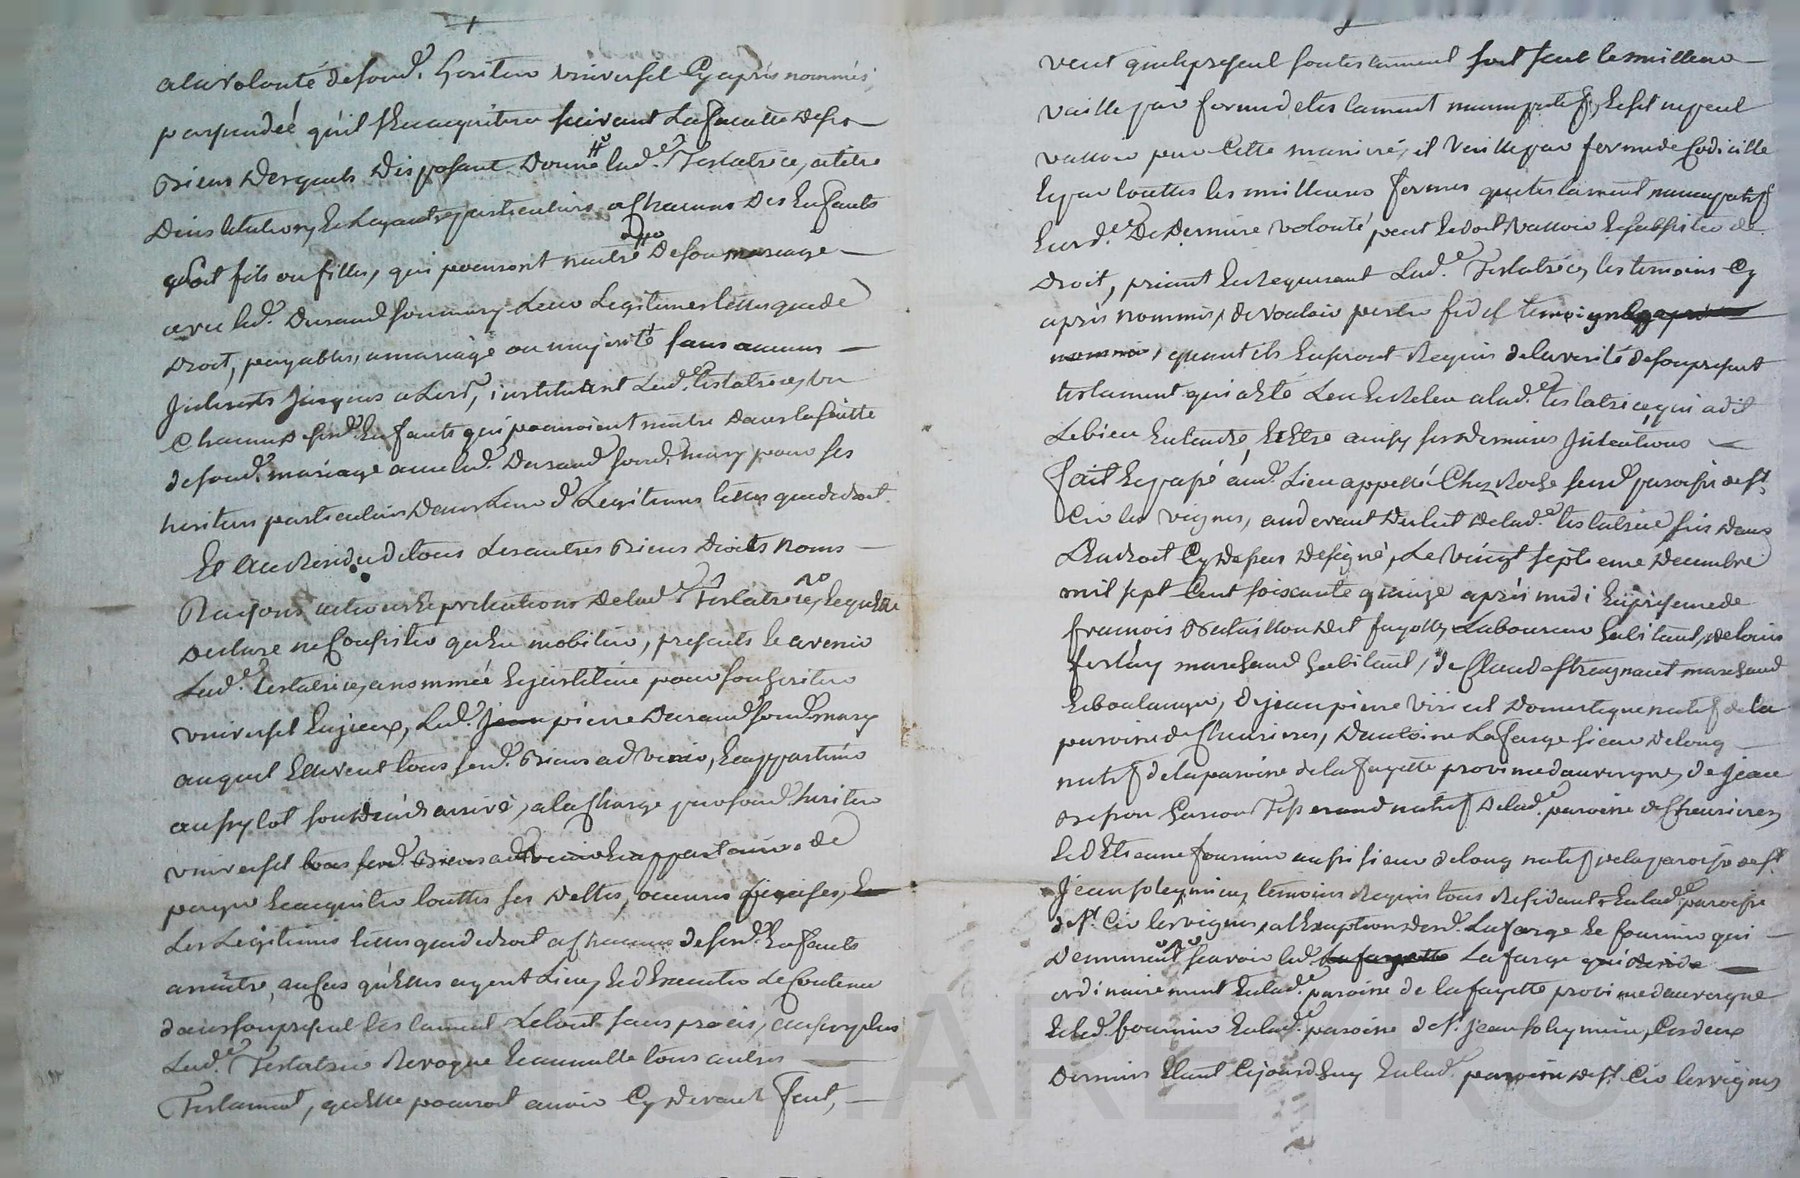 a la volonté de sond. heritier universel cy apres nommé,
persuadéé qu'il s'en acquittera suivant la faculté de ses
Biens desquels disposant donne lad.e Testatrice, a titre
d'institution, et legats particuliers a chacuns des Enfants
soit fils ou filles, qui pourront naitre de son mariage
avec led. Durand son mary leur legitime telle que de
droit, payables, a mariage ou majorité sans aucuns
Interests jusques alors, instituant lad.e testatrice, un
chacuns sesd. Enfants qui pourroient naitre dans la suitte
de sond. mariage avec led. Durand sond. mary pour ses
heritiers particuliers dans leur d. Legitimes telles que de droit.
Et Au Residu de tous les autres Biens droits noms
Raisons actions et pretentions de lad.e Testatrice, lequel elle
declare ne Consister qu'en mobilier, presents et avenir
Lad.e testatrice, a nommée et institüé pour son heritier
universel led. Jean pierre Durand sond. mary
auquel Elle veut tous sesd. Biens advenir, et appartenir
aussytot son deceds arrivé, a la charge par sond. heritier
universel tous sesd. Biens advenir et appartenir de
payer et acquitter touttes ses dettes, oeuvres
Les Legitimes telles que de droit a chacuns de sesd. Enfants
a naitre, au cas qu'elles ayent Lieu, et d'executer le Contenu
dans son present testament le tout sans procés, au surplus
Lad.e Testatrice Revoque et annulle tous autres
Testament, qu'elle pourroit avoir cy devant fait,
veut que le present son testament soit seul le meilleur
vaille par forme de testament nuncupatif, et s'il ne peut
valloir par cette maniere, il vaille par forme de Codicille
et par touttes les meilleures formes que testament nuncupatif
et ord.e de derniere volonté peut et doit valloir et subsister de
droit, priant et requerant Lad.e Testatrice, les temoins cy
après nommés, de vouloir porter fidel temoignage
nommés, quant ils en seront Requis de la verité de son present
testament qui a eté Leu et releu a lad.e testatrice, qui a dit
Le bien entendre, et etre ainsy ses dernieres Intentions
fait et passé aud. Lieu appellé Chez Roche susd. paroisse de St.
Cir les vignes, au devant du lit de lad.e testatrice sis dans
L'endroit cy dessus designé, Le vingt septieme Decembre
mil sept cent soixante quinze après midi En presence de
francois dit fayolle Laboureur habitant, de Louis
marchand habitant, de Claude marchand
et boulanger, de jean pierre domestique natif de la
paroisse de Chevrieres, d'antoine Lafarge sieur de long
natif de la paroisse de la fayette province d'auvergne, de jean
garcon Tisserand natif de lad.e paroisse de Chevrieres,
et d'Etienne fournier aussi sieur de long natif de la paroisse de St.
jean Soleymieux, temoins Requis tous Residants en lad.e paroisse
de St. Cir les vignes, a l'Exception desd. Lafarge et fournier qui
demeurent scavoir led. Lafayette Lafarge qui reside
ordinairement en lad.e paroisse de la fayette province d'auvergne
et led. fournier en lad.e paroisse de St. jean Soleymieux, ces deux
derniers etant cejourdhuy en lad.e paroisse de St. Cir les vignes